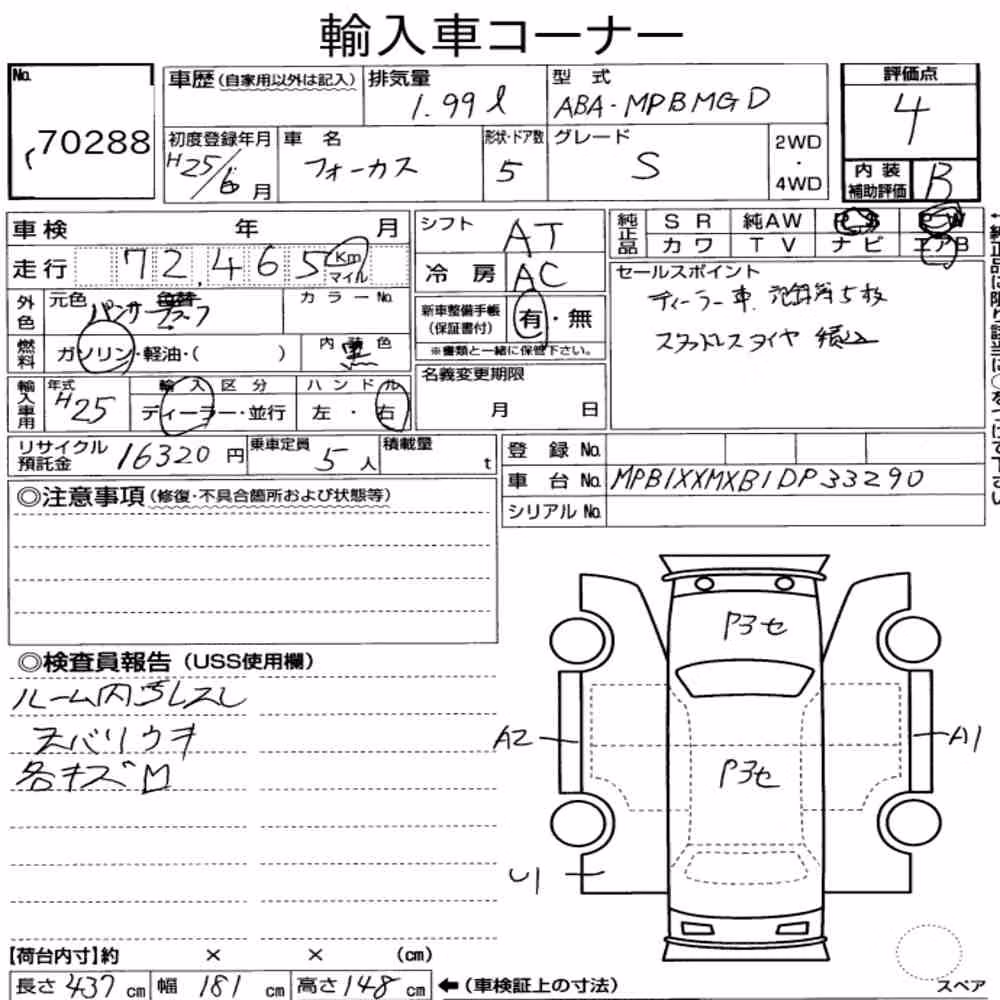 輸入車コーナー
No. 70288
車歴(自家用以外は記入) 排気量 1.99ℓ 型式 ABA-MPBMGD 評価点 4
初度登録年月 H25/6月 車名 フォーカス 形状・ドア数 5 グレード S 2WD・4WD 内装補助評価 B
車検 年 月 シフト AT 純正品 SR 純AW PS PW
走行 72,465 Km マイル 冷房 AC カワ TV ナビ エアB
外色 元色 パンサーブラック 色替 カラーNo. 新車整備手帳(保証書付) 有・無 セールスポイント
ディーラー車
スタッドレスタイヤ 積込
燃料 ガソリン・軽油・( ) 内装色 黒 ※書類と一緒に保管下さい。
輸入車用 年式 H25 輸入区分 ディーラー・並行 ハンドル 左・右 名義変更期限 月 日
リサイクル預託金 16320円 乗車定員 5人 積載量 t 登録No.
車台No. MPB1XXMXB1DP33290
シリアルNo.
◎注意事項(修復・不具合箇所および状態等)
◎検査員報告(USS使用欄)
ルーム内汚レスレ
天バリウキ
各キズ凹
P3セ
A2
A1
P3セ
U1
【荷台内寸】約 × × (cm)
長さ 437 cm 幅 181 cm 高さ 148 cm ←(車検証上の寸法)
スペア